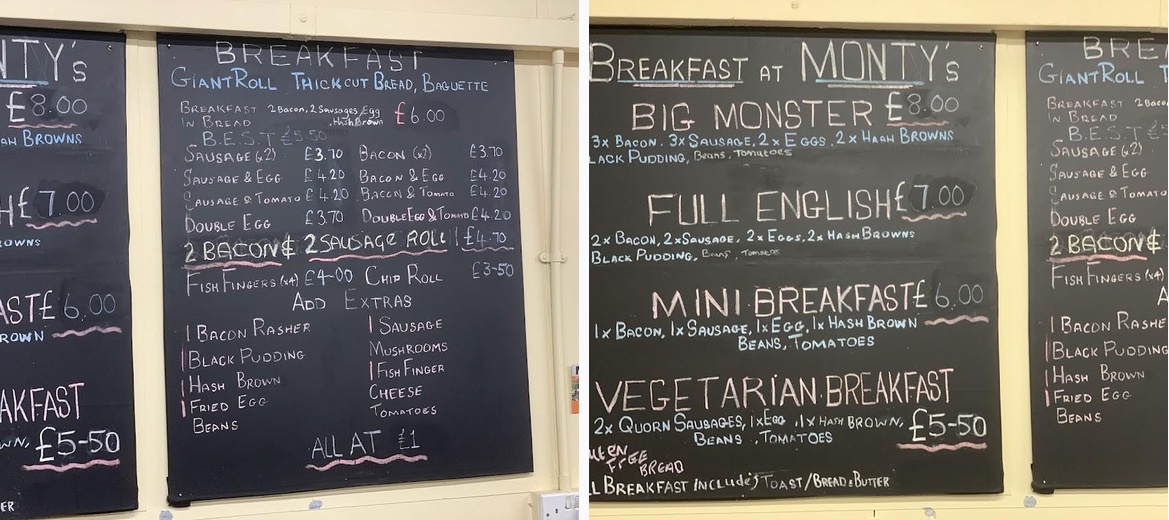 NTY's
£8.00
ASH BROWNS
H£7.00
OWNS
AST£6.00
ROWN
AKFAST
OWN, £5-50
ER
BREAKFAST
GIANT ROLL THICK CUT BREAD, BAGUETTE
BREAKFAST 2 Bacon, 2 Sausages, Egg £6.00
IN BREAD Hash Brown
B.E.S.T £5.50
SAUSAGE (x2) £3.70 BACON (x2) £3.70
SAUSAGE & EGG £4.20 BACON & EGG £4.20
SAUSAGE & TOMATO £4.20 BACON & TOMATO £4.20
DOUBLE EGG £3.70 DOUBLE EGG & TOMATO £4.20
2 BACON & 2 SAUSAGE ROLL £4.70
FISH FINGERS (x4) £4-00 CHIP ROLL £3-50
ADD EXTRAS
1 BACON RASHER 1 SAUSAGE
1 BLACK PUDDING MUSHROOMS
1 HASH BROWN 1 FISH FINGER
1 FRIED EGG CHEESE
BEANS TOMATOES
ALL AT £1
BREAKFAST AT MONTY's
BIG MONSTER £8.00
3x BACON. 3x SAUSAGE, 2x EGGS, 2x HASH BROWNS
LACK PUDDING, Beans, Tomatoes
FULL ENGLISH £7.00
2x BACON, 2xSAUSAGE, 2x EGGS, 2x HASH BROWNS
BLACK PUDDING, Beans, Tomatoes
MINI BREAKFAST £6.00
1x BACON, 1x SAUSAGE, 1x EGG, 1x HASH BROWN
BEANS, TOMATOES
VEGETARIAN BREAKFAST
2x QUORN SAUSAGES, 1xEGG, 1x HASH BROWN, £5-50
BEANS, TOMATOES
UTEN
FREE
BREAD
LL BREAKFAST INCLUDE'S TOAST/BREAD & BUTTER
BRE
GIANT ROLL T
BREAKFAST 2 Baco
IN BREAD
B.E.S.T
SAUSAGE (x2)
SAUSAGE & EGG
SAUSAGE & TOMATO
DOUBLE EGG
2 BACON &
FISH FINGERS (x4)
A
1 BACON RASHE
1 BLACK PUDDING
1 HASH BROWN
1 FRIED EGG
BEANS